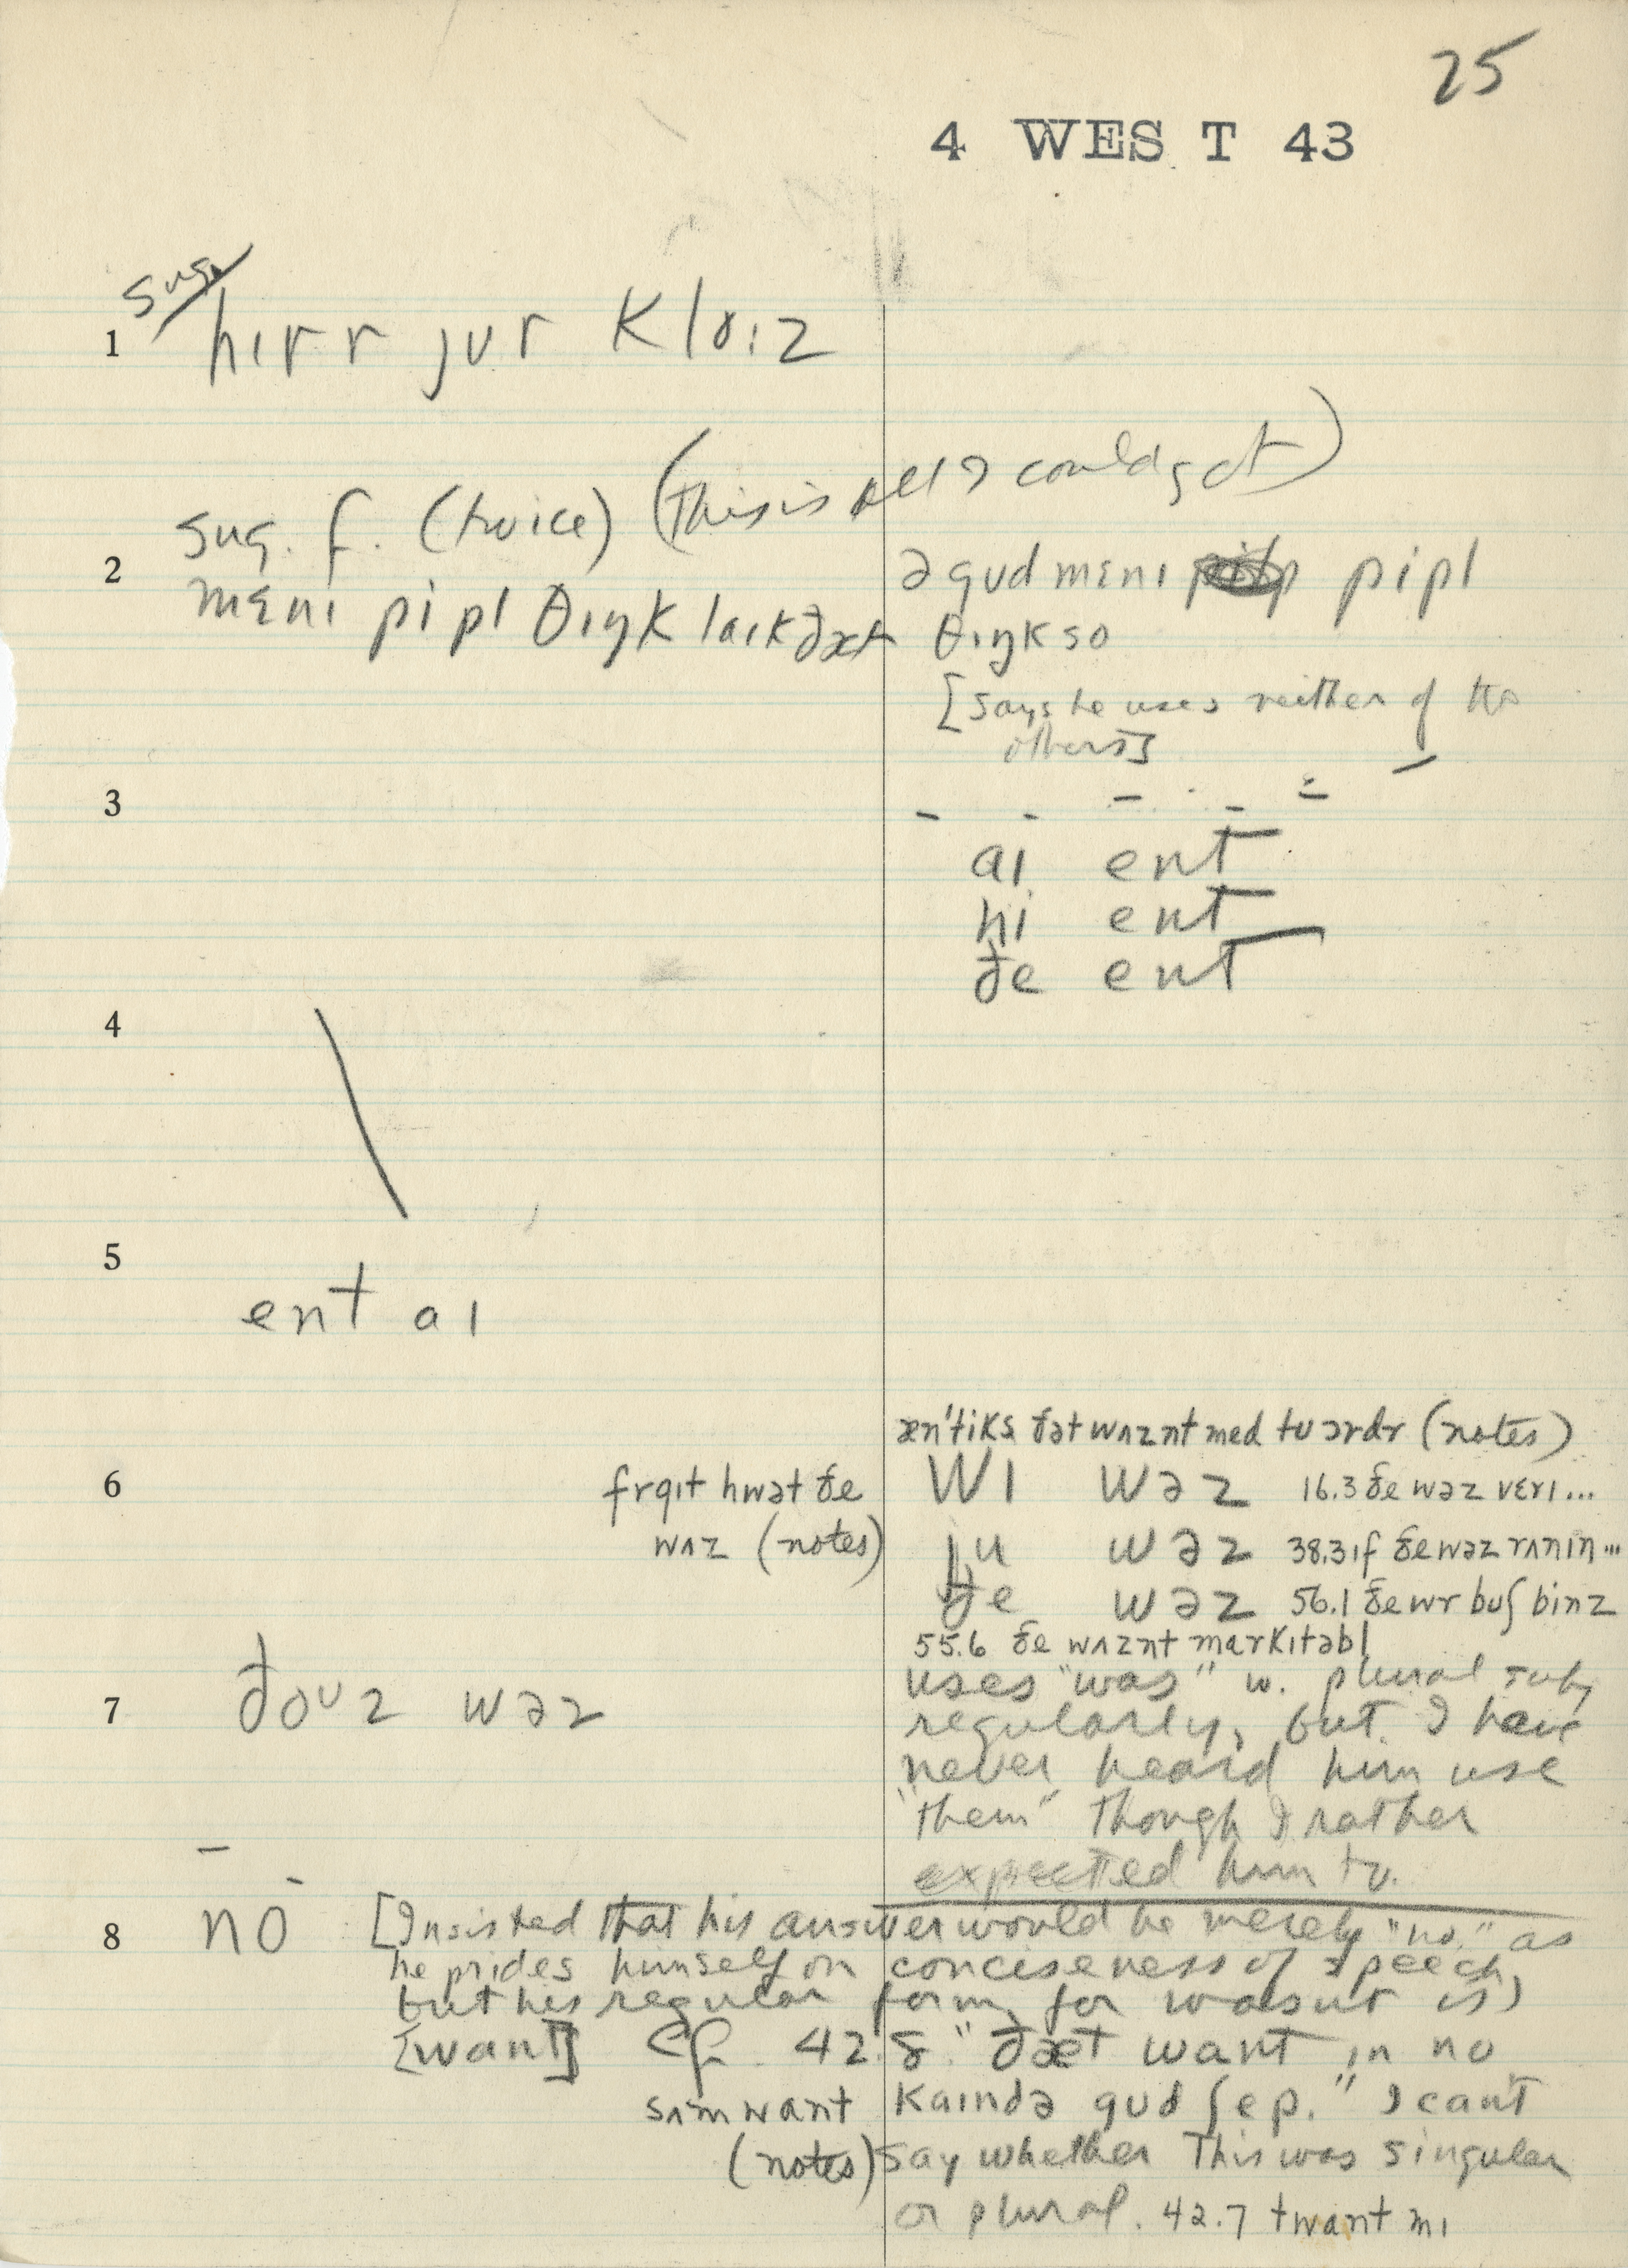 25
4 WEST 43
sug.
1 hɪrr jʊr
2 sug. f. (twice) (This is all I could get)
mɛnɪ pipl θɪŋk laɪk ðæt
ə gʊd mɛnɪ pipl
θɪŋk so
[says he uses neither of the
others]
3
aɪ ent
hi ent
ðe ent
4
5
ent aɪ
æn'tiks ðət wʌznt med tu ɔrdr (notes)
6 frgɪt hwət ðe
wʌz (notes)
wɪ wəz 16.3 ðe wəz vɛrɪ...
ju wəz 38.3 ɪf ðe wəz rʌnɪn...
ðe wəz 56.1 ðe wr buʃ binz
55.6 ðe wʌznt markɪtəbl
7 ðoʊz wəz
uses "was" w. plural subj
regularly, but I have
never heard him use
"them" though I rather
expected him to.
8 no [Insisted that his answer would be merely "no." as
he prides himself on conciseness of speech,
but his regular form for wasnt is)
[want] cf. 42.8 "ðæt want ɪn no
kaɪndə gʊd ʃep." I cant
sʌm want
(notes)
say whether this was singular
or plural. 42.7 twant mɪ